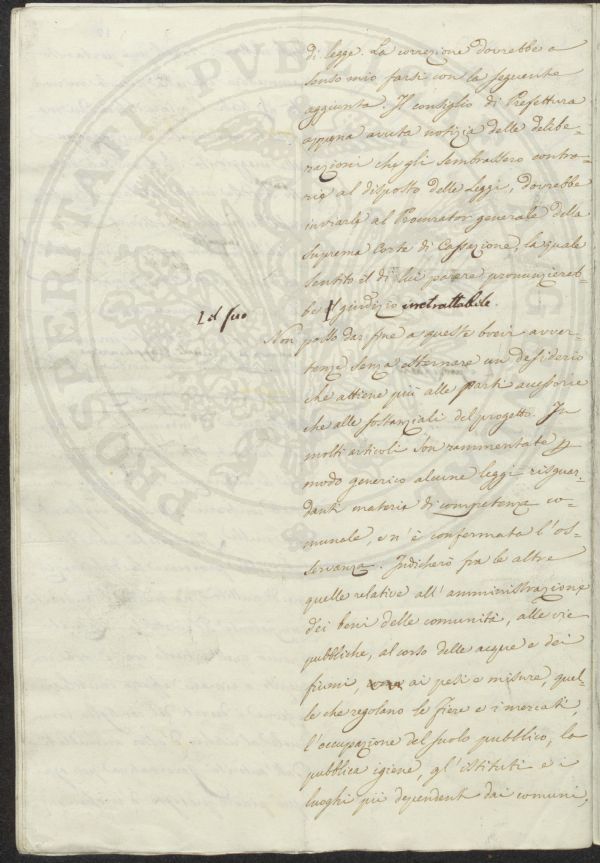 di legge. La correzione dovrebbe a
senso mio farsi con la seguente
aggiunta. Il consiglio di Prefettura
appena avuta notizia delle delibe-
razioni che gli sembrassero contra-
rie al disposto delle Leggi, dovrebbe
inviarle al Procurator generale della
Suprema Corte di Cassazione, la quale
sentito il di lui parere pronunziereb-
be giudizio inretrattabile.
il suo
Non posso dar fine a queste brevi avver-
tenze senza esternare un desiderio
che attiene più alle parti accessorie
che alle sostanziali del progetto. In
molti articoli son rammentate
modo generico alcune leggi risguar-
danti materie di competenza co-
munale, e n'è confermata l'os-
servanza. Indicherò fra le altre
quelle relative all'amministrazione
dei beni delle comunità, alle vie
pubbliche, al corso delle acque e dei
fiumi, ai pesi e misure, quel-
le che regolano le fiere e i mercati,
l'occupazione del suolo pubblico, la
pubblica igiene, gl'istituti e i
luoghi pii dependenti dai comuni,
PROSPERITATI PVBLICAE